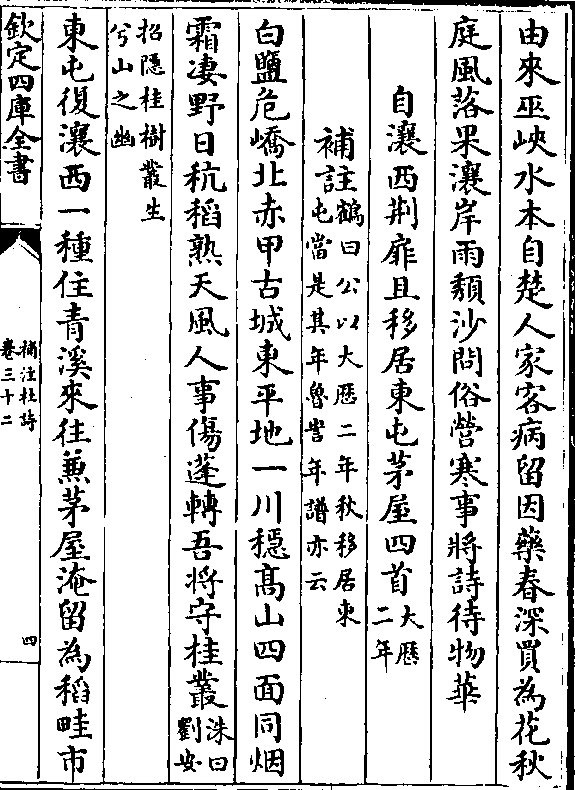 由來巫峽水本自楚人家客病留因藥春深買為花秋
庭風落果瀼岸雨頽沙問俗營寒事將詩待物華
自瀼西荆扉且移居東屯茅屋四首大厯
二年
補註鶴曰公以大厯二年秋移居東
屯當是其年魯訔年譜亦云
白鹽危嶠北赤甲古城東平地一川穩髙山四面同烟
霜凄野日秔稻熟天風人事傷蓬轉吾將守桂叢洙曰
劉安
招隠桂樹叢生
兮山之幽
東屯復瀼西一種住青溪來往兼茅屋淹留為稻畦市
欽定四庫全書
補注杜詩
卷三十二
四